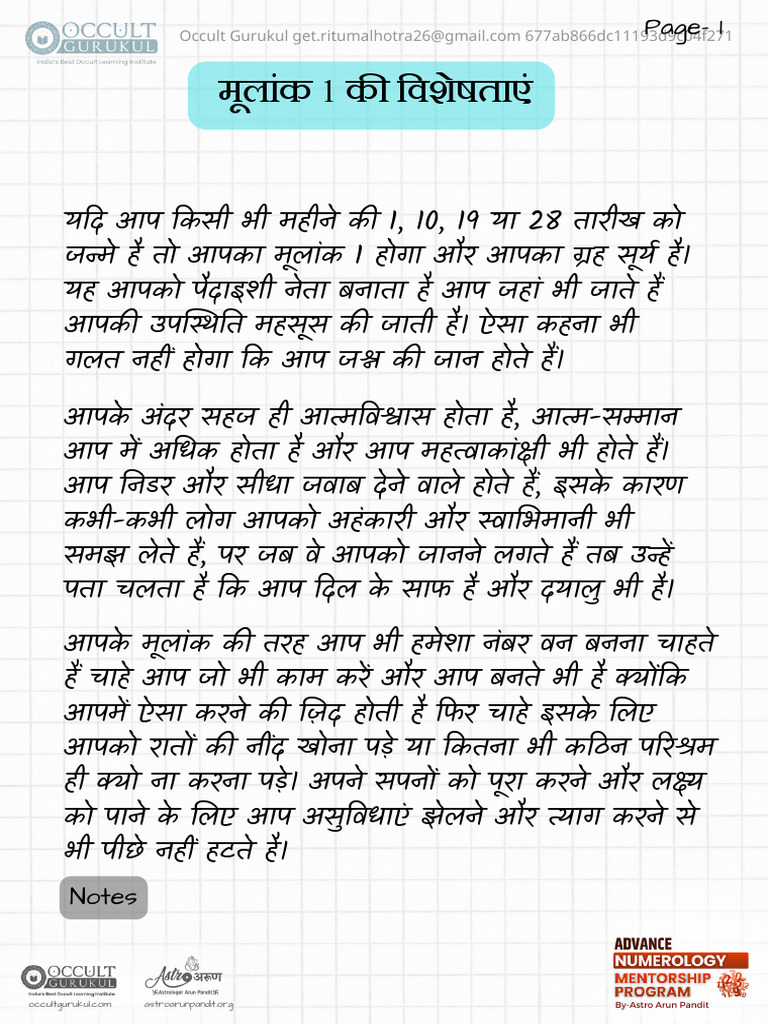 OCCULT
GURUKUL
India's Best Occult Learning Institute
Occult Gurukul get.ritumalhotra26@gmail.com
Page- 1
मूलांक 1 की विशेषताएं
यदि आप किसी भी महीने की 1, 10, 19 या 28 तारीख को
जन्मे है तो आपका मूलांक 1 होगा और आपका ग्रह सूर्य है।
यह आपको पैदाइशी नेता बनाता है आप जहां भी जाते हैं
आपकी उपस्थिति महसूस की जाती है। ऐसा कहना भी
गलत नहीं होगा कि आप जश्न की जान होते हैं।
आपके अंदर सहज ही आत्मविश्वास होता है, आत्म-सम्मान
आप में अधिक होता है और आप महत्वाकांक्षी भी होते हैं।
आप निडर और सीधा जवाब देने वाले होते हैं, इसके कारण
कभी-कभी लोग आपको अहंकारी और स्वाभिमानी भी
समझ लेते हैं, पर जब वे आपको जानने लगते हैं तब उन्हें
पता चलता है कि आप दिल के साफ है और दयालु भी है।
आपके मूलांक की तरह आप भी हमेशा नंबर वन बनना चाहते
हैं चाहे आप जो भी काम करें और आप बनते भी है क्योंकि
आपमें ऐसा करने की ज़िद होती है फिर चाहे इसके लिए
आपको रातों की नींद खोना पड़े या कितना भी कठिन परिश्रम
ही क्यो ना करना पड़े। अपने सपनों को पूरा करने और लक्ष्य
को पाने के लिए आप असुविधाएं झेलने और त्याग करने से
भी पीछे नहीं हटते है।
Notes
OCCULT
GURUKUL
India's Best Occult Learning Institute
occultgurukul.com
Astro अरुण
卐Astrologer Arun Pandit卐
astroarunpandit.org
ADVANCE
NUMEROLOGY
MENTORSHIP
PROGRAM
By-Astro Arun Pandit